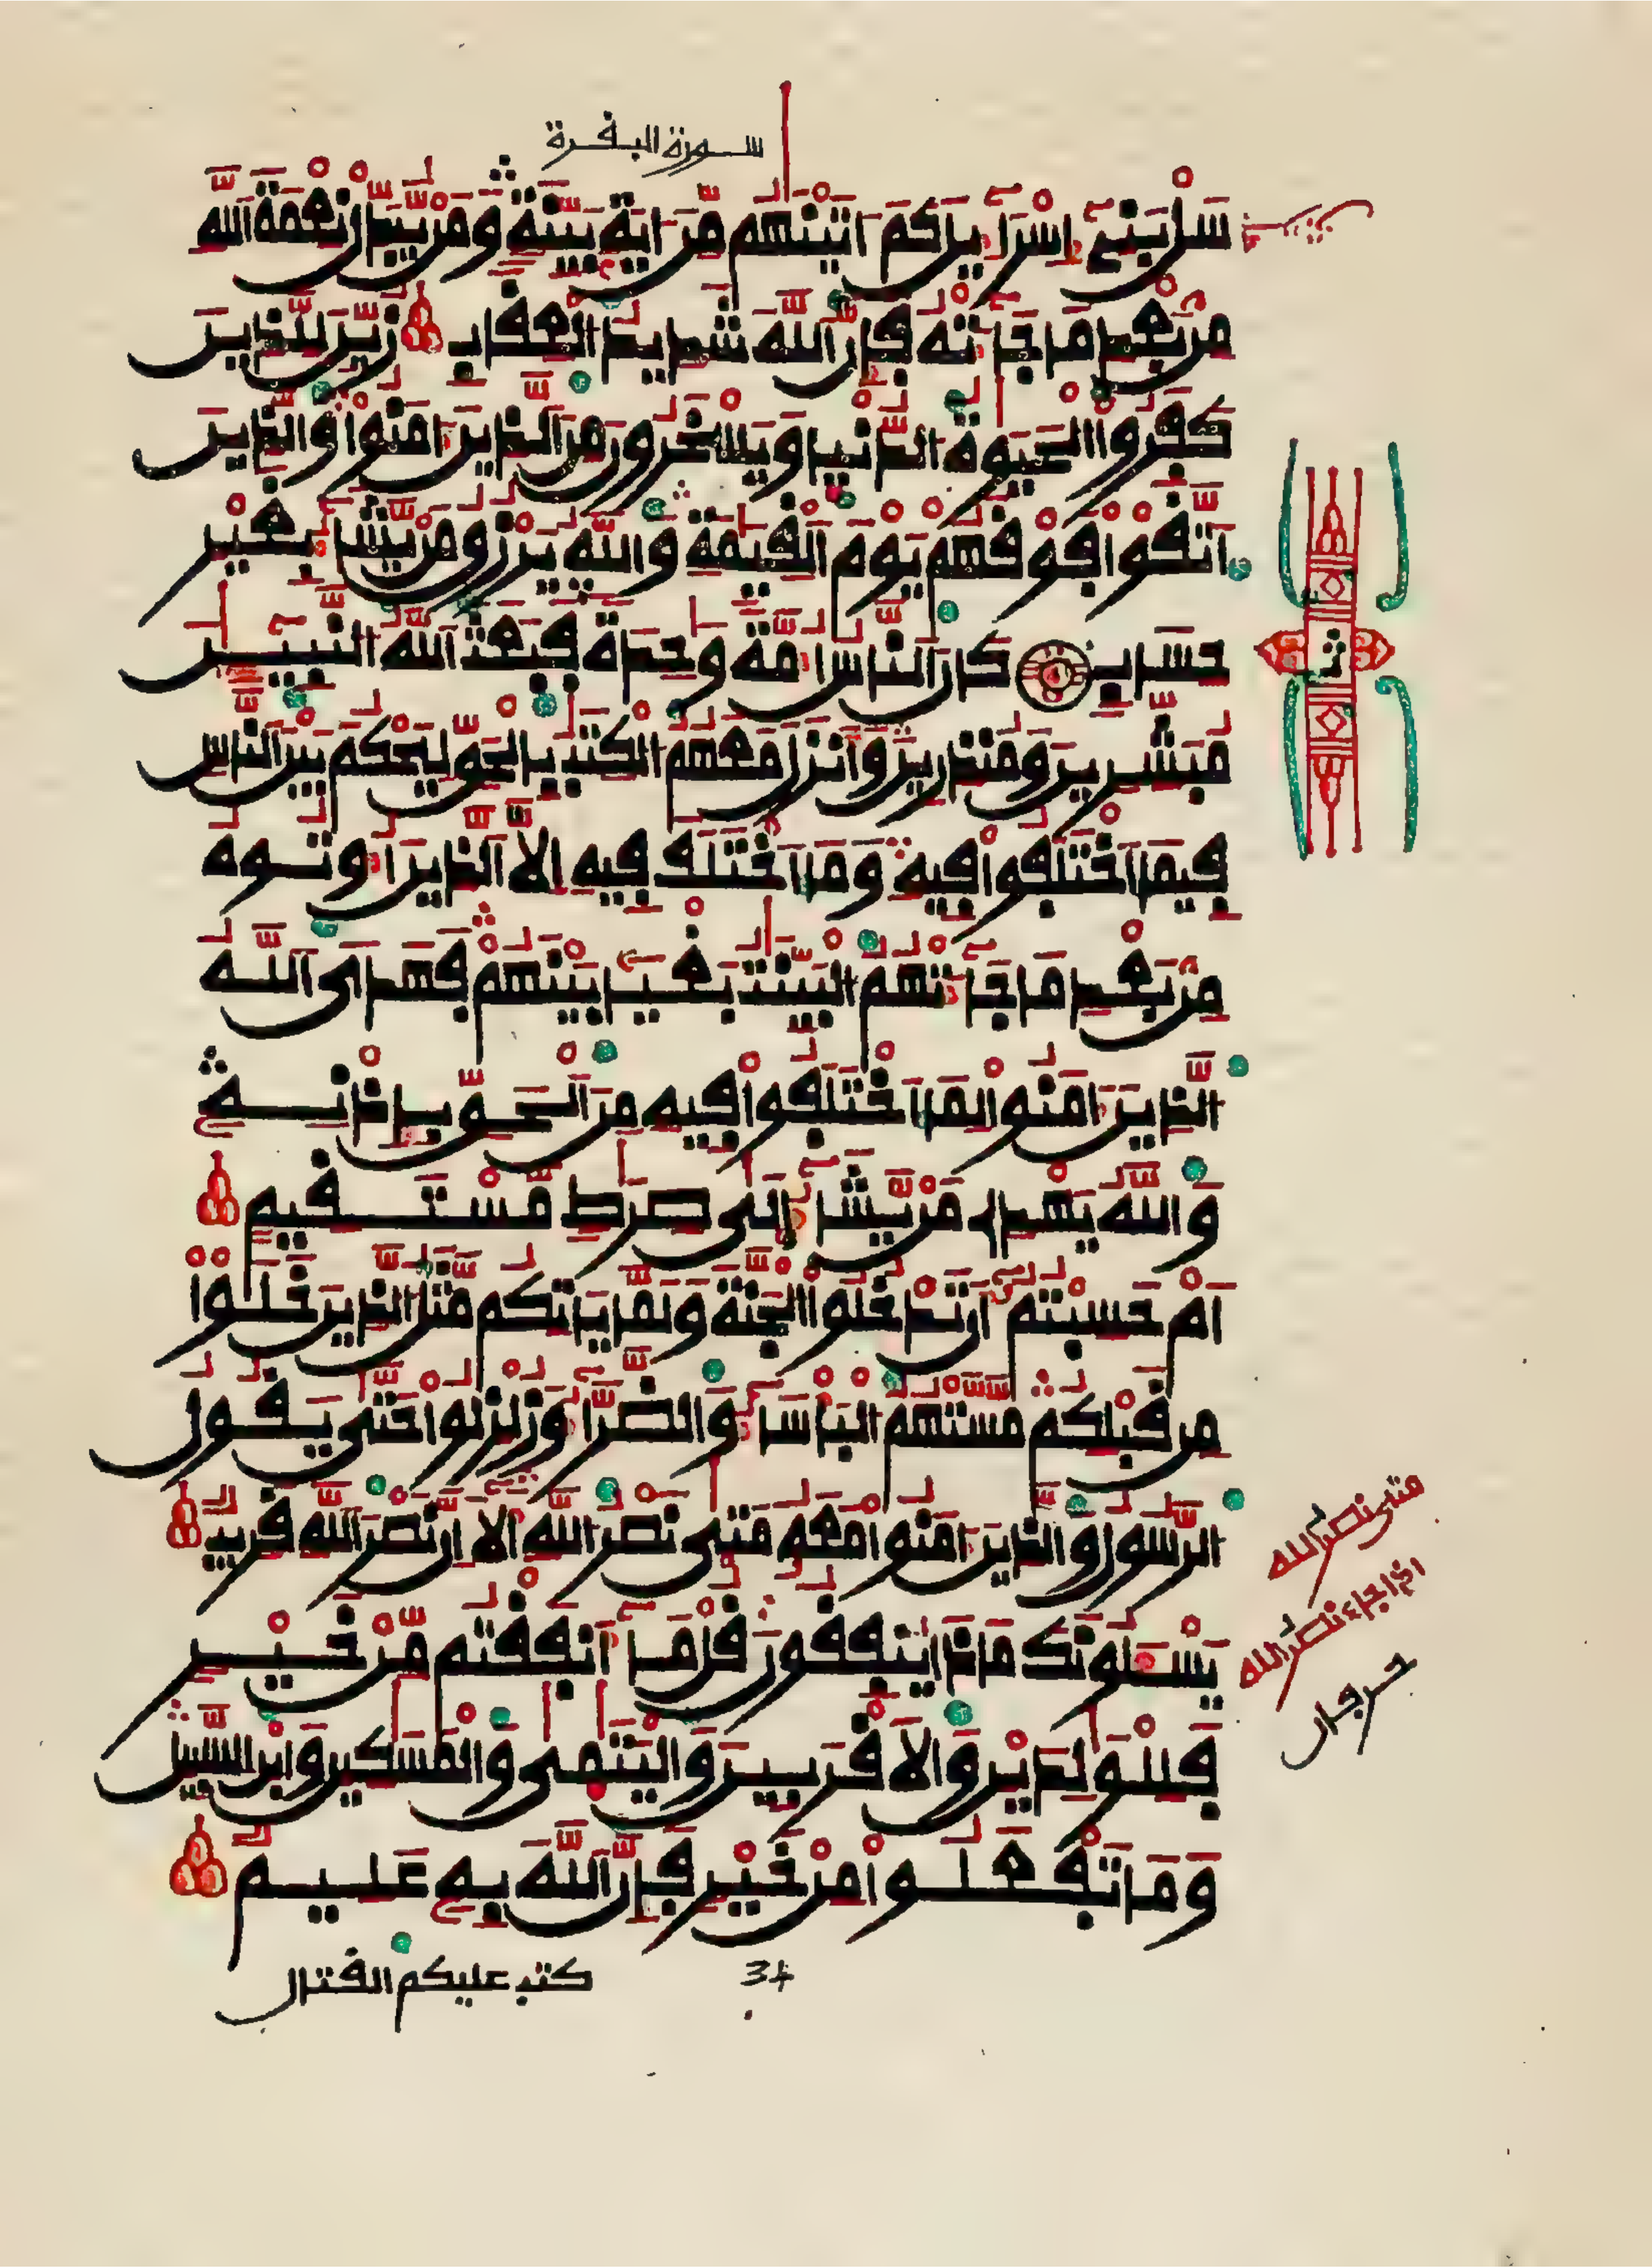 سورة البقرة
سَلْ بَنِےٓ إِسْرَآءِيلَ كَمَ اٰتَيْنَٰهُم مِّنَ اٰيَةِۢ بَيِّنَةٖ وَمَنْ يُّبَدِّلْ نِعْمَةَ اَ۬للَّهِ
مِنۢ بَعْدِ مَا جَآءَتْهُ فَإِنَّ اَ۬للَّهَ شَدِيدُ اُ۬لْعِقَابِ زُيِّنَ لِلذِينَ
كَفَرُواْ اُ۬لْحَيَوٰةُ اُ۬لدُّنْيَا وَيَسْخَرُونَ مِنَ اَ۬لذِينَ ءَامَنُواْ وَالذِينَ
اَ۪تَّقَواْ فَوْقَهُمْ يَوْمَ اَ۬لْقِيَٰمَةِ وَاللَّهُ يَرْزُقُ مَنْ يَّشَآءُ بِغَيْرِ
حِسَابٖ كَانَ اَ۬لنَّاسُ أُمَّةٗ وَٰحِدَةٗ فَبَعَثَ اَ۬للَّهُ اُ۬لنَّبِيٓـِٕينَ
مُبَشِّرِينَ وَمُنذِرِينَ وَأَنزَلَ مَعَهُمُ اُ۬لْكِتَٰبَ بِالْحَقِّ لِيَحْكُمَ بَيْنَ اَ۬لنَّاسِ
فِيمَا اَ۪خْتَلَفُواْ فِيهِ وَمَا اَ۪خْتَلَفَ فِيهِ إِلَّا اَ۬لذِينَ أُوتُوهُ
مِنۢ بَعْدِ مَا جَآءَتْهُمُ اُ۬لْبَيِّنَٰتُ بَغْياَۢ بَيْنَهُمْ فَهَدَى اَ۬للَّهُ
اُ۬لذِينَ ءَامَنُواْ لِمَا اَ۪خْتَلَفُواْ فِيهِ مِنَ اَ۬لْحَقِّ بِإِذْنِهِۦ
وَاللَّهُ يَهْدِے مَنْ يَّشَآءُ إِلَىٰ صِرَٰطٖ مُّسْتَقِيمٍ
اَمْ حَسِبْتُمُۥٓ أَن تَدْخُلُواْ اُ۬لْجَنَّةَ وَلَمَّا يَاتِكُم مَّثَلُ اُ۬لذِينَ خَلَوْاْ
مِن قَبْلِكُم مَّسَّتْهُمُ اُ۬لْبَأْسَآءُ وَالضَّرَّآءُ وَزُلْزِلُواْ حَتَّىٰ يَقُولُ
اُ۬لرَّسُولُ وَالذِينَ ءَامَنُواْ مَعَهُۥ مَتَىٰ نَصْرُ اُ۬للَّهِ أَلَآ إِنَّ نَصْرَ اَ۬للَّهِ قَرِيبٞ
يَسْـَٔلُونَكَ مَاذَا يُنفِقُونَ قُلْ مَآ أَنفَقْتُم مِّنْ خَيْرٖ
فَلِلْوَٰلِدَيْنِ وَالَاقْرَبِينَ وَالْيَتَٰمَىٰ وَالْمَسَٰكِينِ وَابْنِ اِ۬لسَّبِيلِ
وَمَا تَفْعَلُواْ مِنْ خَيْرٖ فَإِنَّ اَ۬للَّهَ بِهِۦ عَلِيمٞ
34
كتب عليكم القتال
ثمن
متى نصر الله
اذا جاء نصر الله
حرفان